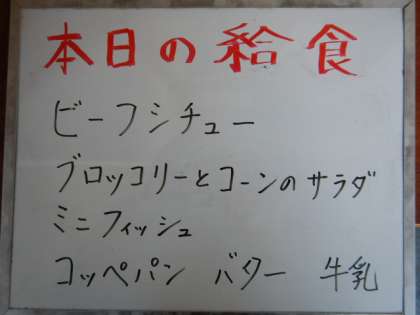 本日の給食
ビーフシチュー
ブロッコリーとコーンのサラダ
ミニフィッシュ
コッペパン バター 牛乳